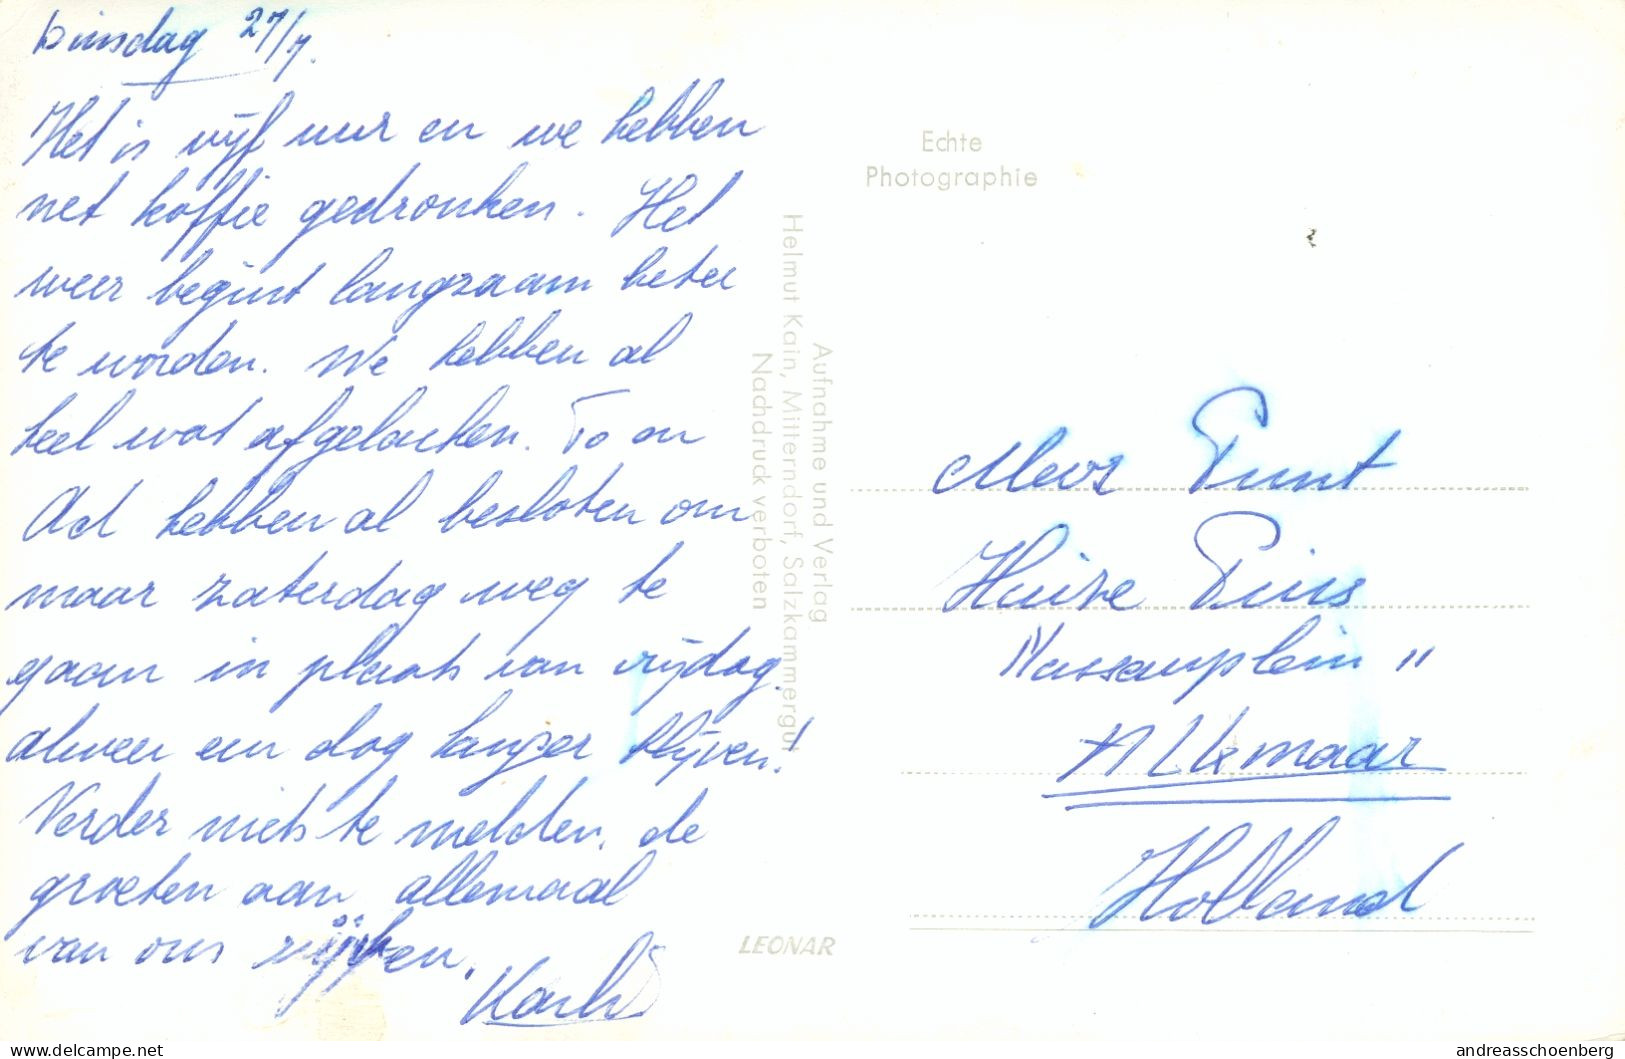 Dinsdag 27/7.
Het is vijf uur en we hebben
net koffie gedronken. Het
weer begint langzaam beter
te worden. We hebben al
heel wat afgelachen. To en
Ad hebben al besloten om
maar zaterdag weg te
gaan in plaats van vrijdag.
alweer een dag langer blijven!
Verder niets te melden. de
groeten aan allemaal
van ons vijven.
Echte
Photographie
Aufnahme und Verlag
Helmut Kain, Mitterndorf, Salzkammergut
Nachdruck verboten
LEONAR
Mevr Punt
Huize Pius
Nassauplein 11
Alkmaar
Holland
delcampe.net
andreasschoenberg